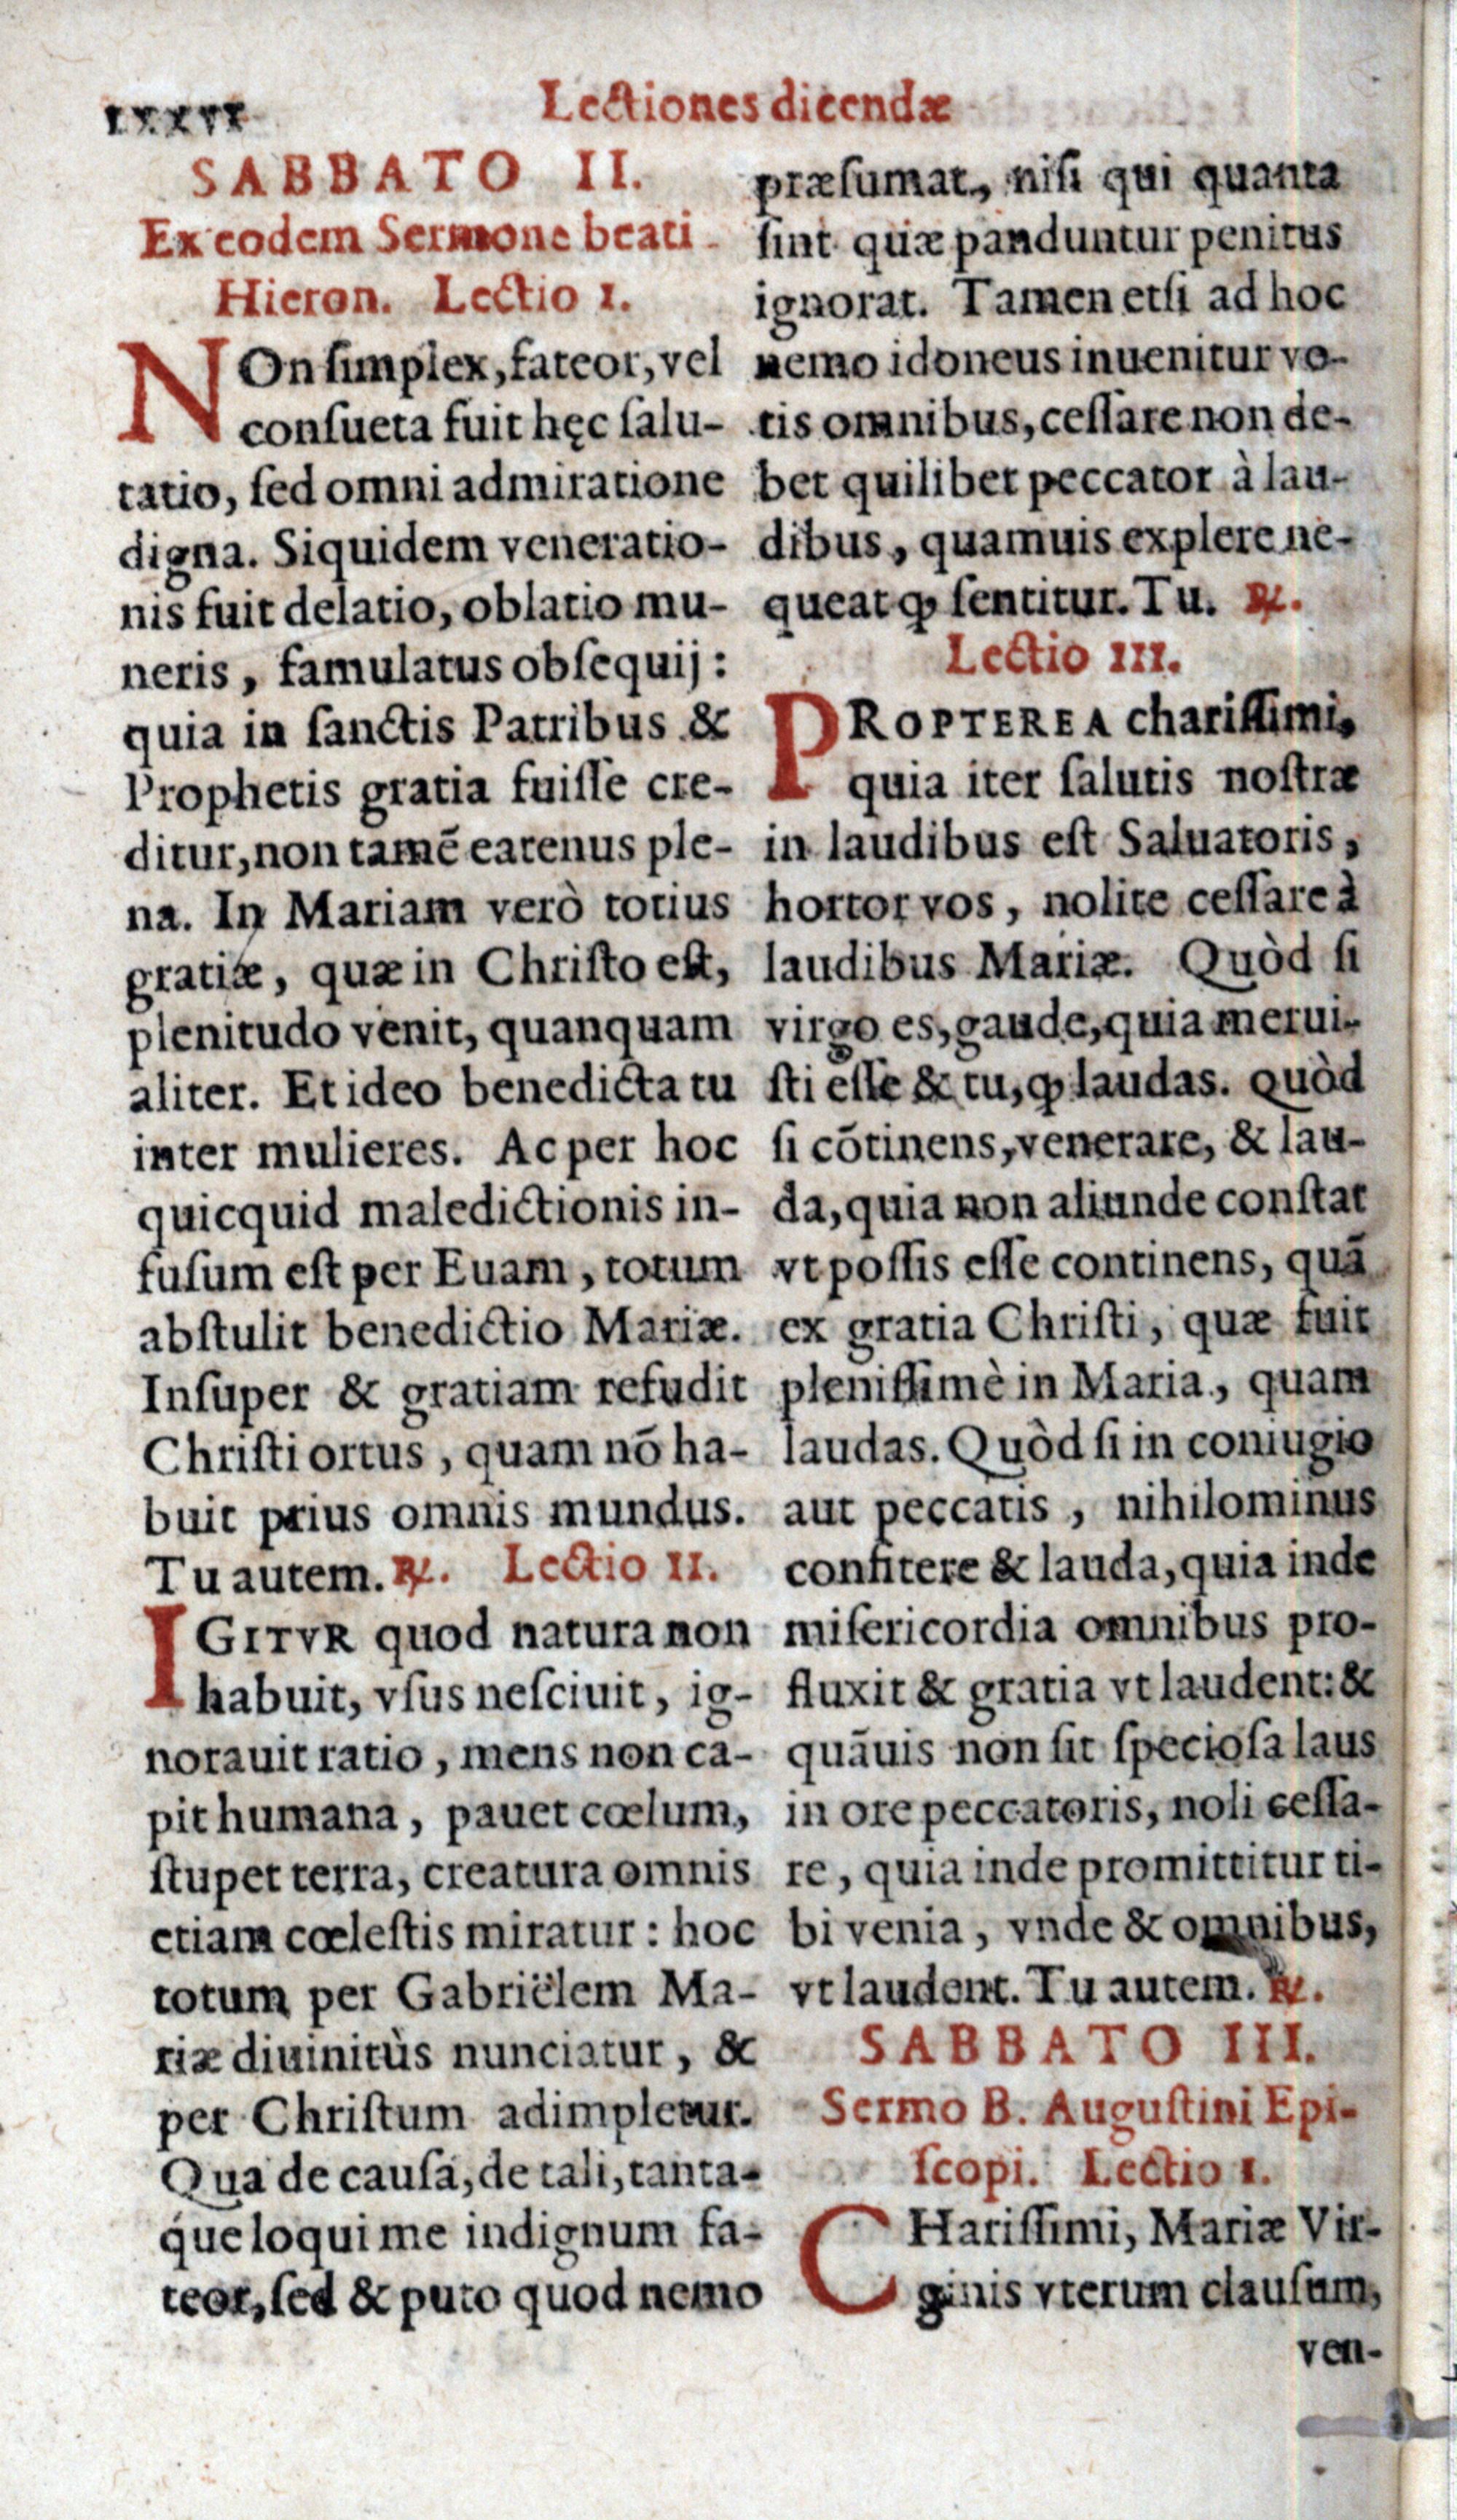 LXXVI
Lectiones dicendæ
SABBATO II.
Ex eodem Sermone beati
Hieron. Lectio I.
NOn ſimplex, fateor, vel
conſueta fuit hęc ſalu-
tatio, ſed omni admiratione
digna. Siquidem veneratio-
nis fuit delatio, oblatio mu-
neris, famulatus obſequij:
quia in ſanctis Patribus &
Prophetis gratia fuiſſe cre-
ditur, non tamẽ eatenus ple-
na. In Mariam verò totius
gratiæ, quæ in Chriſto eſt,
plenitudo venit, quanquam
aliter. Et ideo benedicta tu
inter mulieres. Ac per hoc
quicquid maledictionis in-
fuſum eſt per Euam, totum
abſtulit benedictio Mariæ.
Inſuper & gratiam refudit
Chriſti ortus, quam nõ ha-
buit prius omnis mundus.
Tu autem. ℟. Lectio II.
IGITVR quod natura non
habuit, vſus neſciuit, ig-
norauit ratio, mens non ca-
pit humana, pauet cœlum,
ſtupet terra, creatura omnis
etiam cœleſtis miratur: hoc
totum per Gabriëlem Ma-
riæ diuinitùs nunciatur, &
per Chriſtum adimpletur.
Qua de cauſa, de tali, tanta-
que loqui me indignum fa-
teor, ſed & puto quod nemo
præſumat, niſi qui quanta
ſint quæ panduntur penitus
ignorat. Tamen etſi ad hoc
nemo idoneus inuenitur vo-
tis omnibus, ceſſare non de-
bet quilibet peccator à lau-
dibus, quamuis explere ne-
queat ꝙ ſentitur. Tu. ℟.
Lectio III.
PROPTEREA chariſſimi,
quia iter ſalutis noſtræ
in laudibus eſt Saluatoris,
hortor vos, nolite ceſſare à
laudibus Mariæ. Quòd ſi
virgo es, gaude, quia merui-
ſti eſſe & tu, ꝙ laudas. quòd
ſi cõtinens, venerare, & lau-
da, quia non aliunde conſtat
vt poſſis eſſe continens, quã
ex gratia Chriſti, quæ fuit
pleniſſimè in Maria, quam
laudas. Quòd ſi in coniugio
aut peccatis, nihilominus
confitere & lauda, quia inde
miſericordia omnibus pro-
fluxit & gratia vt laudent: &
quãuis non ſit ſpecioſa laus
in ore peccatoris, noli ceſſa-
re, quia inde promittitur ti-
bi venia, vnde & omnibus,
vt laudent. Tu autem. ℟.
SABBATO III.
Sermo B. Auguſtini Epi-
ſcopi. Lectio I.
CHariſſimi, Mariæ Vir-
ginis vterum clauſum,
ven-